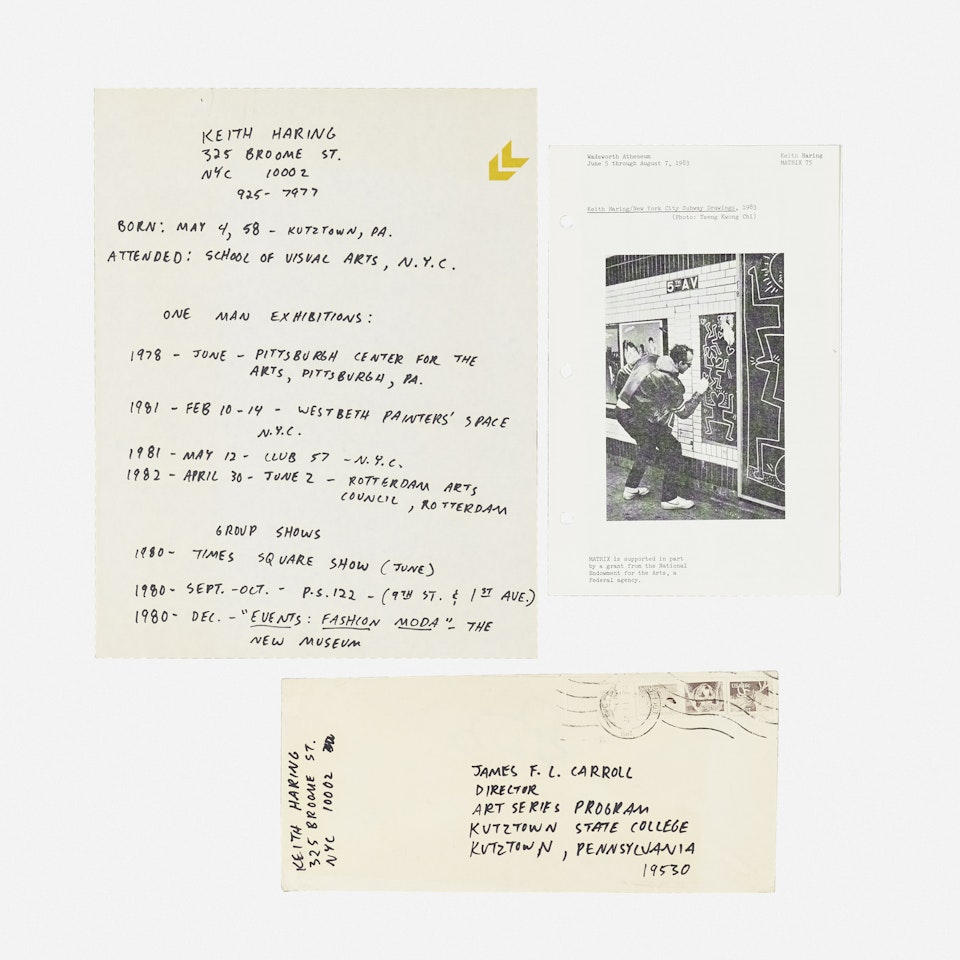 KEITH HARING
325 BROOME ST.
NYC 10002
925-7977
BORN: MAY 4, 58 - KUTZTOWN, PA.
ATTENDED: SCHOOL OF VISUAL ARTS, N.Y.C.
ONE MAN EXHIBITIONS:
1978 - JUNE - PITTSBURGH CENTER FOR THE
ARTS, PITTSBURGH, PA.
1981 - FEB 10-14 - WESTBETH PAINTERS' SPACE
N.Y.C.
1981 - MAY 12 - CLUB 57 - N.Y.C.
1982 - APRIL 30 - JUNE 2 - ROTTERDAM ARTS
COUNCIL, ROTTERDAM
GROUP SHOWS
1980 - TIMES SQUARE SHOW (JUNE)
1980 - SEPT. - OCT. - P.S. 122 - (9TH ST. & 1ST AVE.)
1980 - DEC. - "EVENTS: FASHION MODA" - THE
NEW MUSEUM
Wadsworth Atheneum
June 5 through August 7, 1983
Keith Haring
MATRIX 75
Keith Haring/New York City Subway Drawings, 1983
(Photo: Tseng Kwong Chi)
5TH AV
MATRIX is supported in part
by a grant from the National
Endowment for the Arts, a
Federal agency.
KEITH HARING
325 BROOME ST.
NYC 10002
JAMES F. L. CARROLL
DIRECTOR
ART SERIES PROGRAM
KUTZTOWN STATE COLLEGE
KUTZTOWN, PENNSYLVANIA
19530